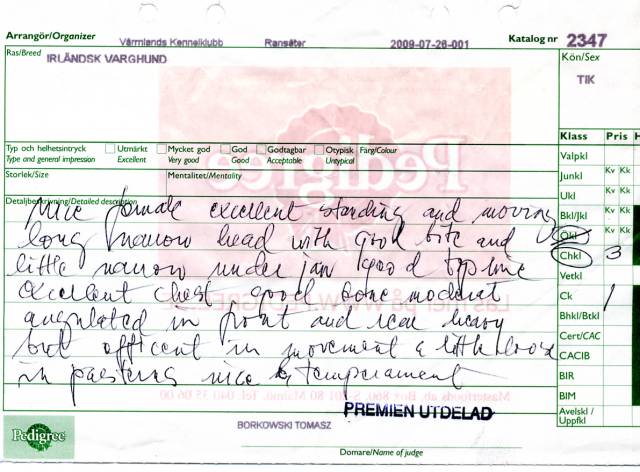 Arrangör/Organizer Värmlands Kennelklubb Ransäter 2009-07-26-001 Katalog nr 2347
Ras/Breed IRLÄNDSK VARGHUND Kön/Sex
TIK
Klass Pris
Typ och helhetsintryck Utmärkt Mycket god God Godtagbar Otypisk Färg/Colour
Type and general impression Excellent Very good Good Acceptable Untypical
Storlek/Size Mentalitet/Mentality
Detaljbeskrivning/Detailed description
Nice female excellent standing and moving
long narrow head with good bite and
little narrow under jaw good topline
excellent chest good bone moderat
angulated in front and rear heavy
but efficent in movement a little loose
in pasterns nice temperament
Valpkl
Junkl Kv Kk
Ukl Kv Kk
Bkl/Jkl Kv Kk
Ökl Kv Kk
Chkl 3
Vetkl
Ck 1
Bhkl/Btkl
Cert/CAC
CACIB
BIR
BIM
Avelskl / Uppfkl
PREMIEN UTDELAD
Pedigree
BORKOWSKI TOMASZ
Domare/Name of judge
Pedigree
Masterfoods ab, Box 860, S-201 80 Malmö. Tel 040 35 06 00